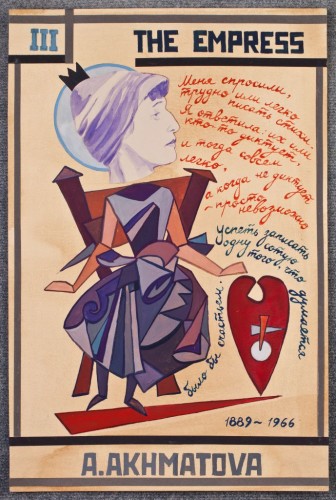 III
THE EMPRESS
Меня спросили,
трудно или легко
писать стихи.
Я ответила: их или
кто-то диктует,
и тогда совсем
легко,
а когда не диктует
- просто
невозможно
Успеть записать
одну сотую
того, что
думается
было бы счастьем.
1889~1966
A.AKHMATOVA